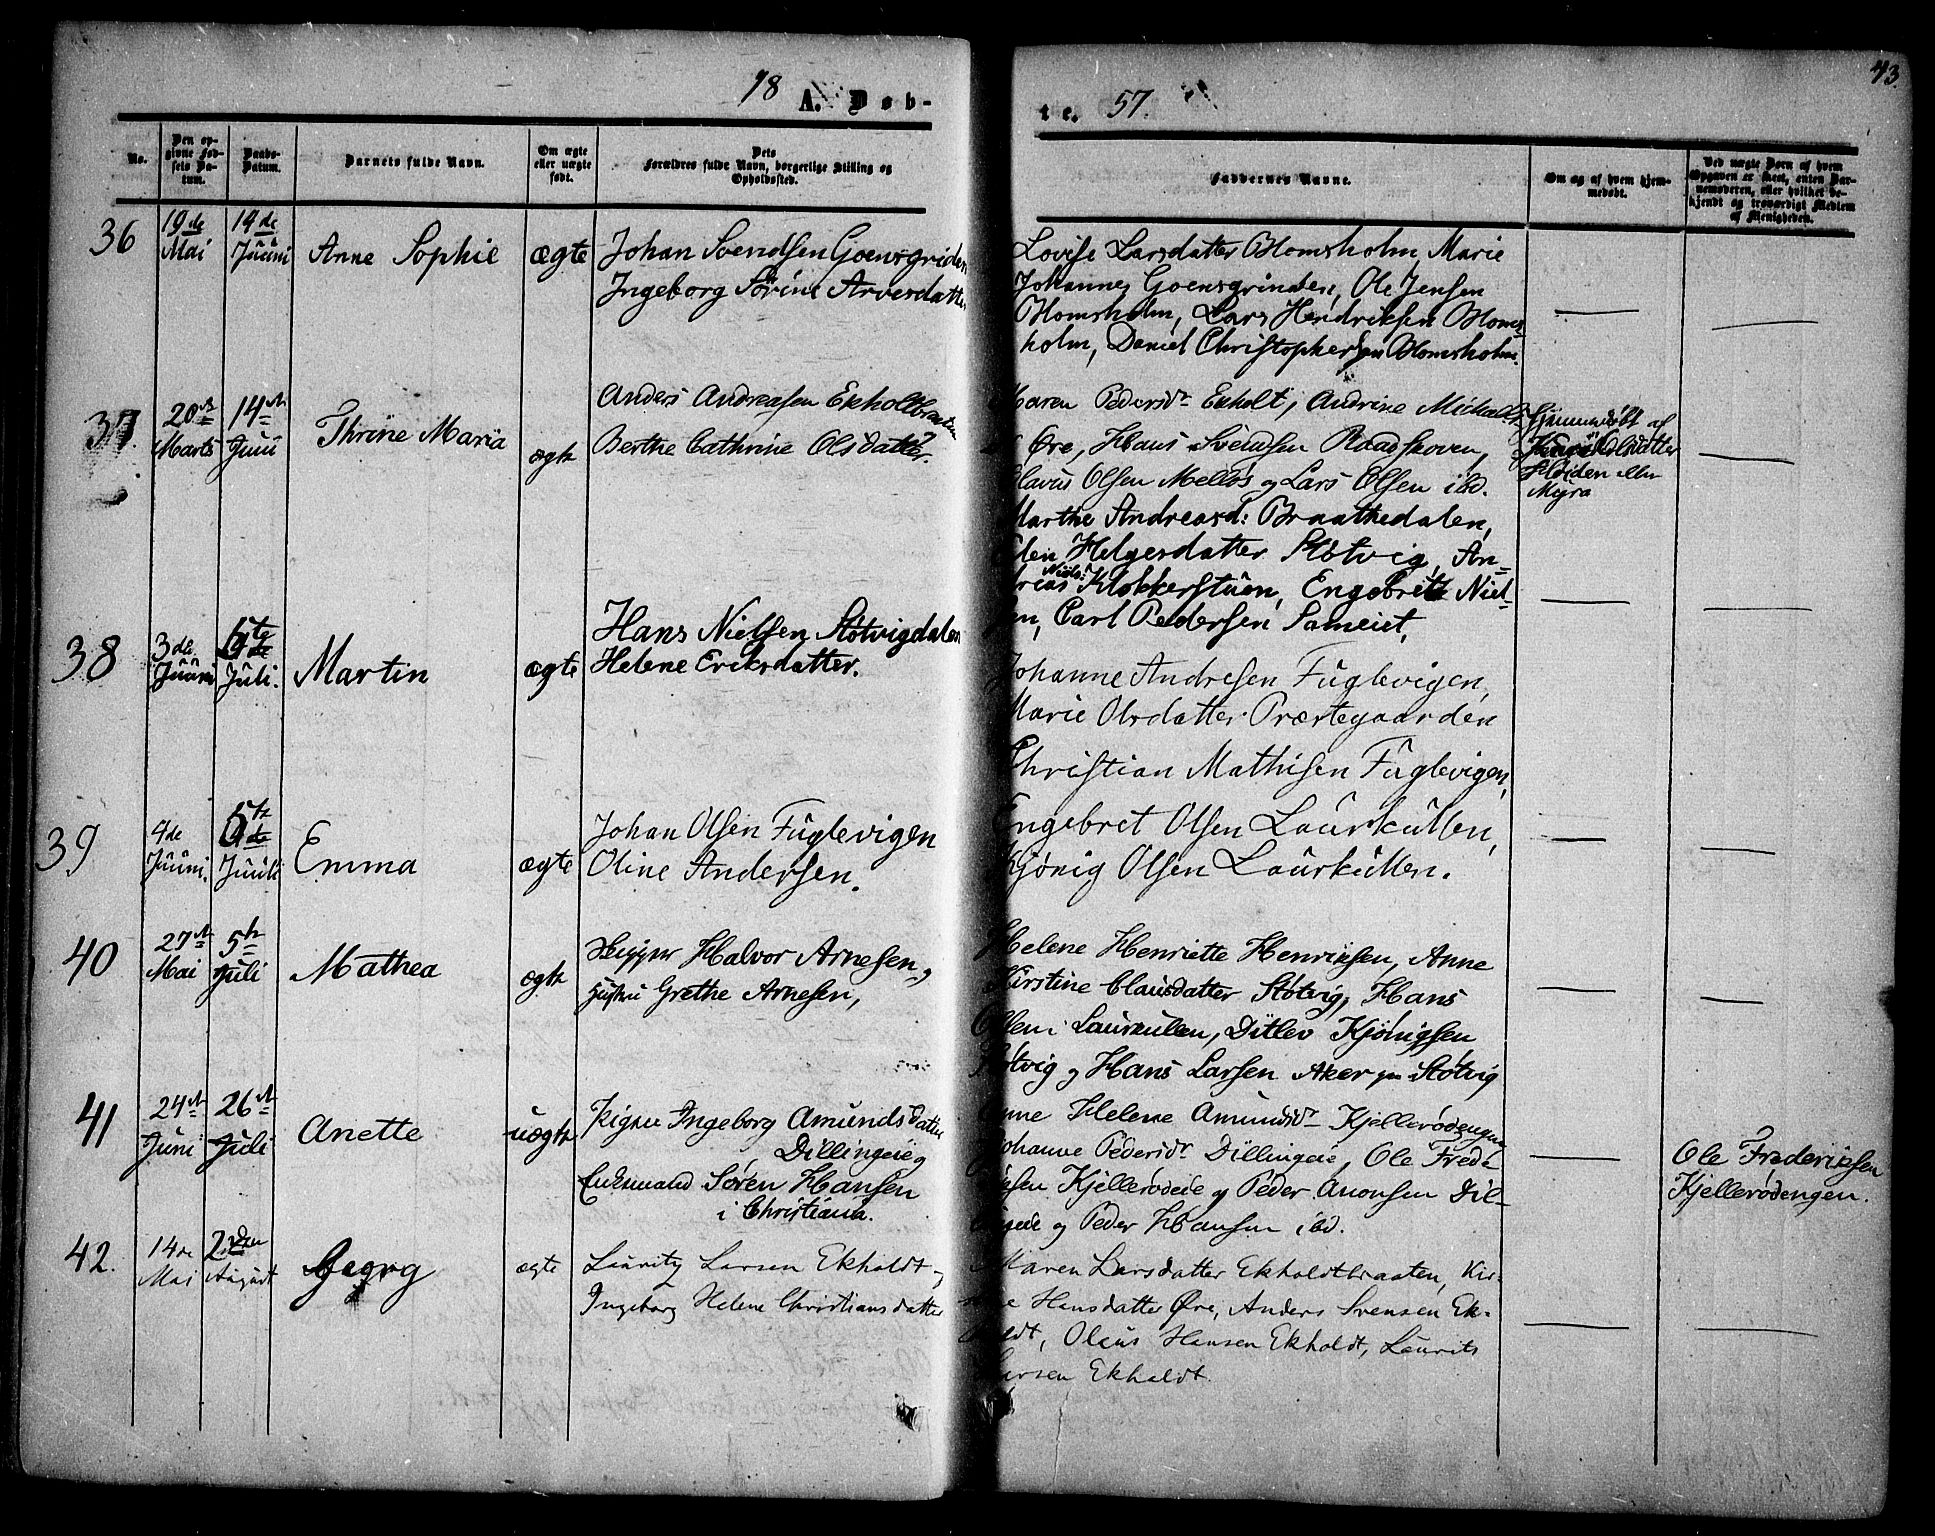 43.
18 A. Døb-
te. 57.
No.
Den op-
givne Fød-
sels Da-
tum.
Daabs-
Datum.
Barnets fulde Navn.
Om ægte
eller uægte
født.
Dets
Forældres fulde Navn, borgerlige Stilling og
Opholdssted.
Faddernes Navne.
Om og af hvem hjem-
medøbt.
Ved uægte Børn af hvem
Opgaven er skeet, enten Bar-
nemoderen, eller hvilket be-
kjendt og troværdigt Medlem
af Menigheden.
36
19de
Mai
14de
Juuni
Anne Sophie
ægte
Johan Svendsen Goensgrinden
Ingeborg Sørine Arvesdatter
Lovise Larsdatter Homsholm, Marie
Johannes Goensgrinden, Ole Jensen
Homsholm, Lars Hendriksen Homs-
holm, Daniel Christophersen Homsholm.
37.
20de
Marts
14de
Juni
Thrine Maria
ægte
Anders Andreasen Ekholtbraaten
Berthe Cathrine Olsdatter.
Maren Pedersdr Ekholt, Andrine Michaels
Øre, Hans Svendsen Raadskoven,
Olavus Olsen Melløs og Lars Olsen ibd.
Hjemmedøbt af
Olsdatter
Floiden eller
Myra
38
3de
Juuni
5te
Juli.
Martin
ægte
Hans Nielsen Støtvigdalen
Helene Eriksdatter.
Marthe Andreasd: Braathedalen,
Elen Helgesdatter Støtvig, An-
dreas Niels: Klokkerstuen, Engebret Niel-
sen, Carl Pedersen Sameiet,
39
4de
Juuni.
5te
Juuli
Emma
ægte
Johan Olsen Fuglevigen
Oline Andersen.
Johanne Andresen Fuglevigen,
Marie Olsdatter Præstegaarden
Christian Mathisen Fuglevigen,
Engebret Olsen Laurkullen,
Kjønig Olsen Laurkullen.
40
27de
Mai
5te
Juli
Mathea
ægte
Skipper Halvor Arnesen og
Hustru Grethe Arnesen,
Helene Henriette Henriksen, Anne
Kirstine Clausdatter Støtvig, Hans
Olsen Laurkullen, Ditlev Kjønigsen
Støtvig og Hans Larsen Aker paa Støtvig
41
24de
Juni
26de
Juli
Anette
uægte
Pigen Ingeborg Amunds Datter
Dillingeie og
Enkemand Søren Hansen
i Christiania.
Anne Helene Amundsdr Kjellerødengen
Johanne Pedersdr Dillingeie, Ole Frede-
riksen Kjellerødeie og Peder Amonsen Dil-
lingeie og Peder Hansen ibd.
Ole Frederiksen
Kjellerødengen.
42.
14de
Mai
2den
August
Georg
ægte
Lauritz Larsen Ekholdt og
Ingeborg Helene Christiansdatter
Maren Larsdatter Ekholdtbraaten, Kir-
stine Hansdatter Øre, Anders Svensen Ek-
holdt, Olaus Hansen Ekholdt, Laurits
Larsen Ekholdt.